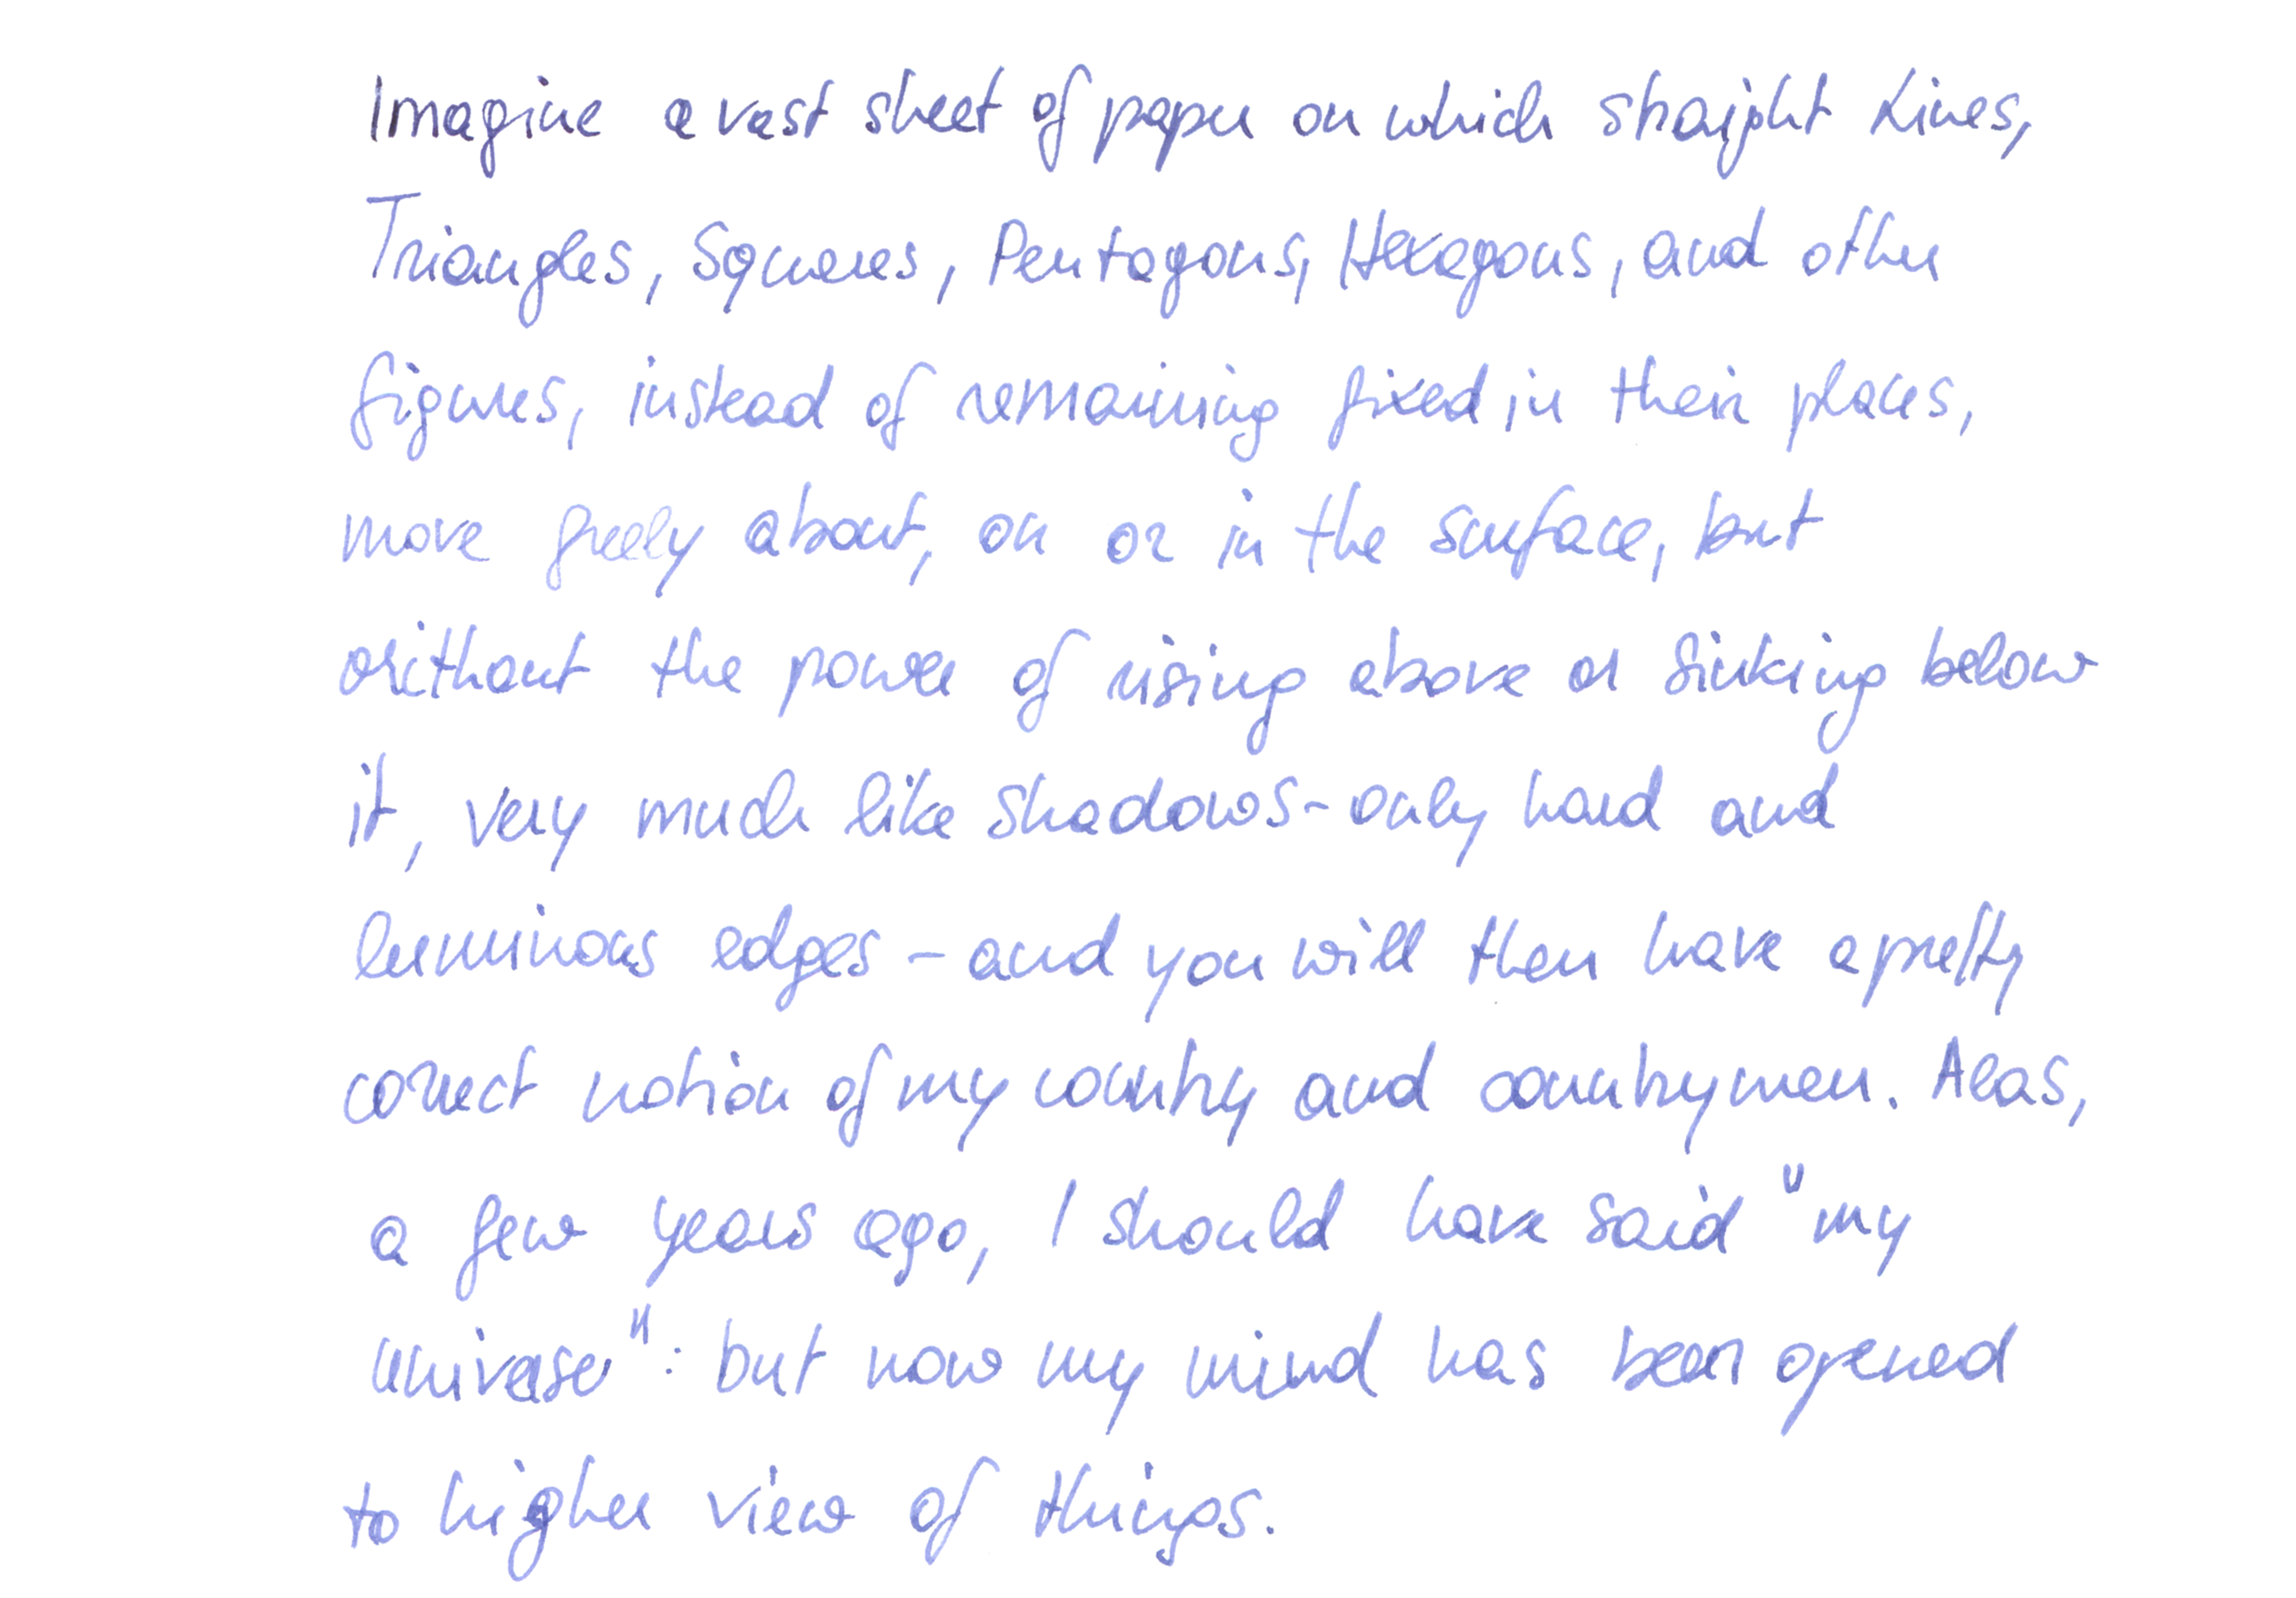 Imagine a vast sheet of paper on which straight Lines,
Triangles, Squares, Pentagons, Hexagons, and other
figures, instead of remaining fixed in their places,
move freely about, on or in the surface, but
without the power of rising above or sinking below
it, very much like shadows - only hard and
luminous edges - and you will then have a pretty
correct notion of my country and countrymen. Alas,
a few years ago, I should have said "my
universe": but now my mind has been opened
to higher view of things.